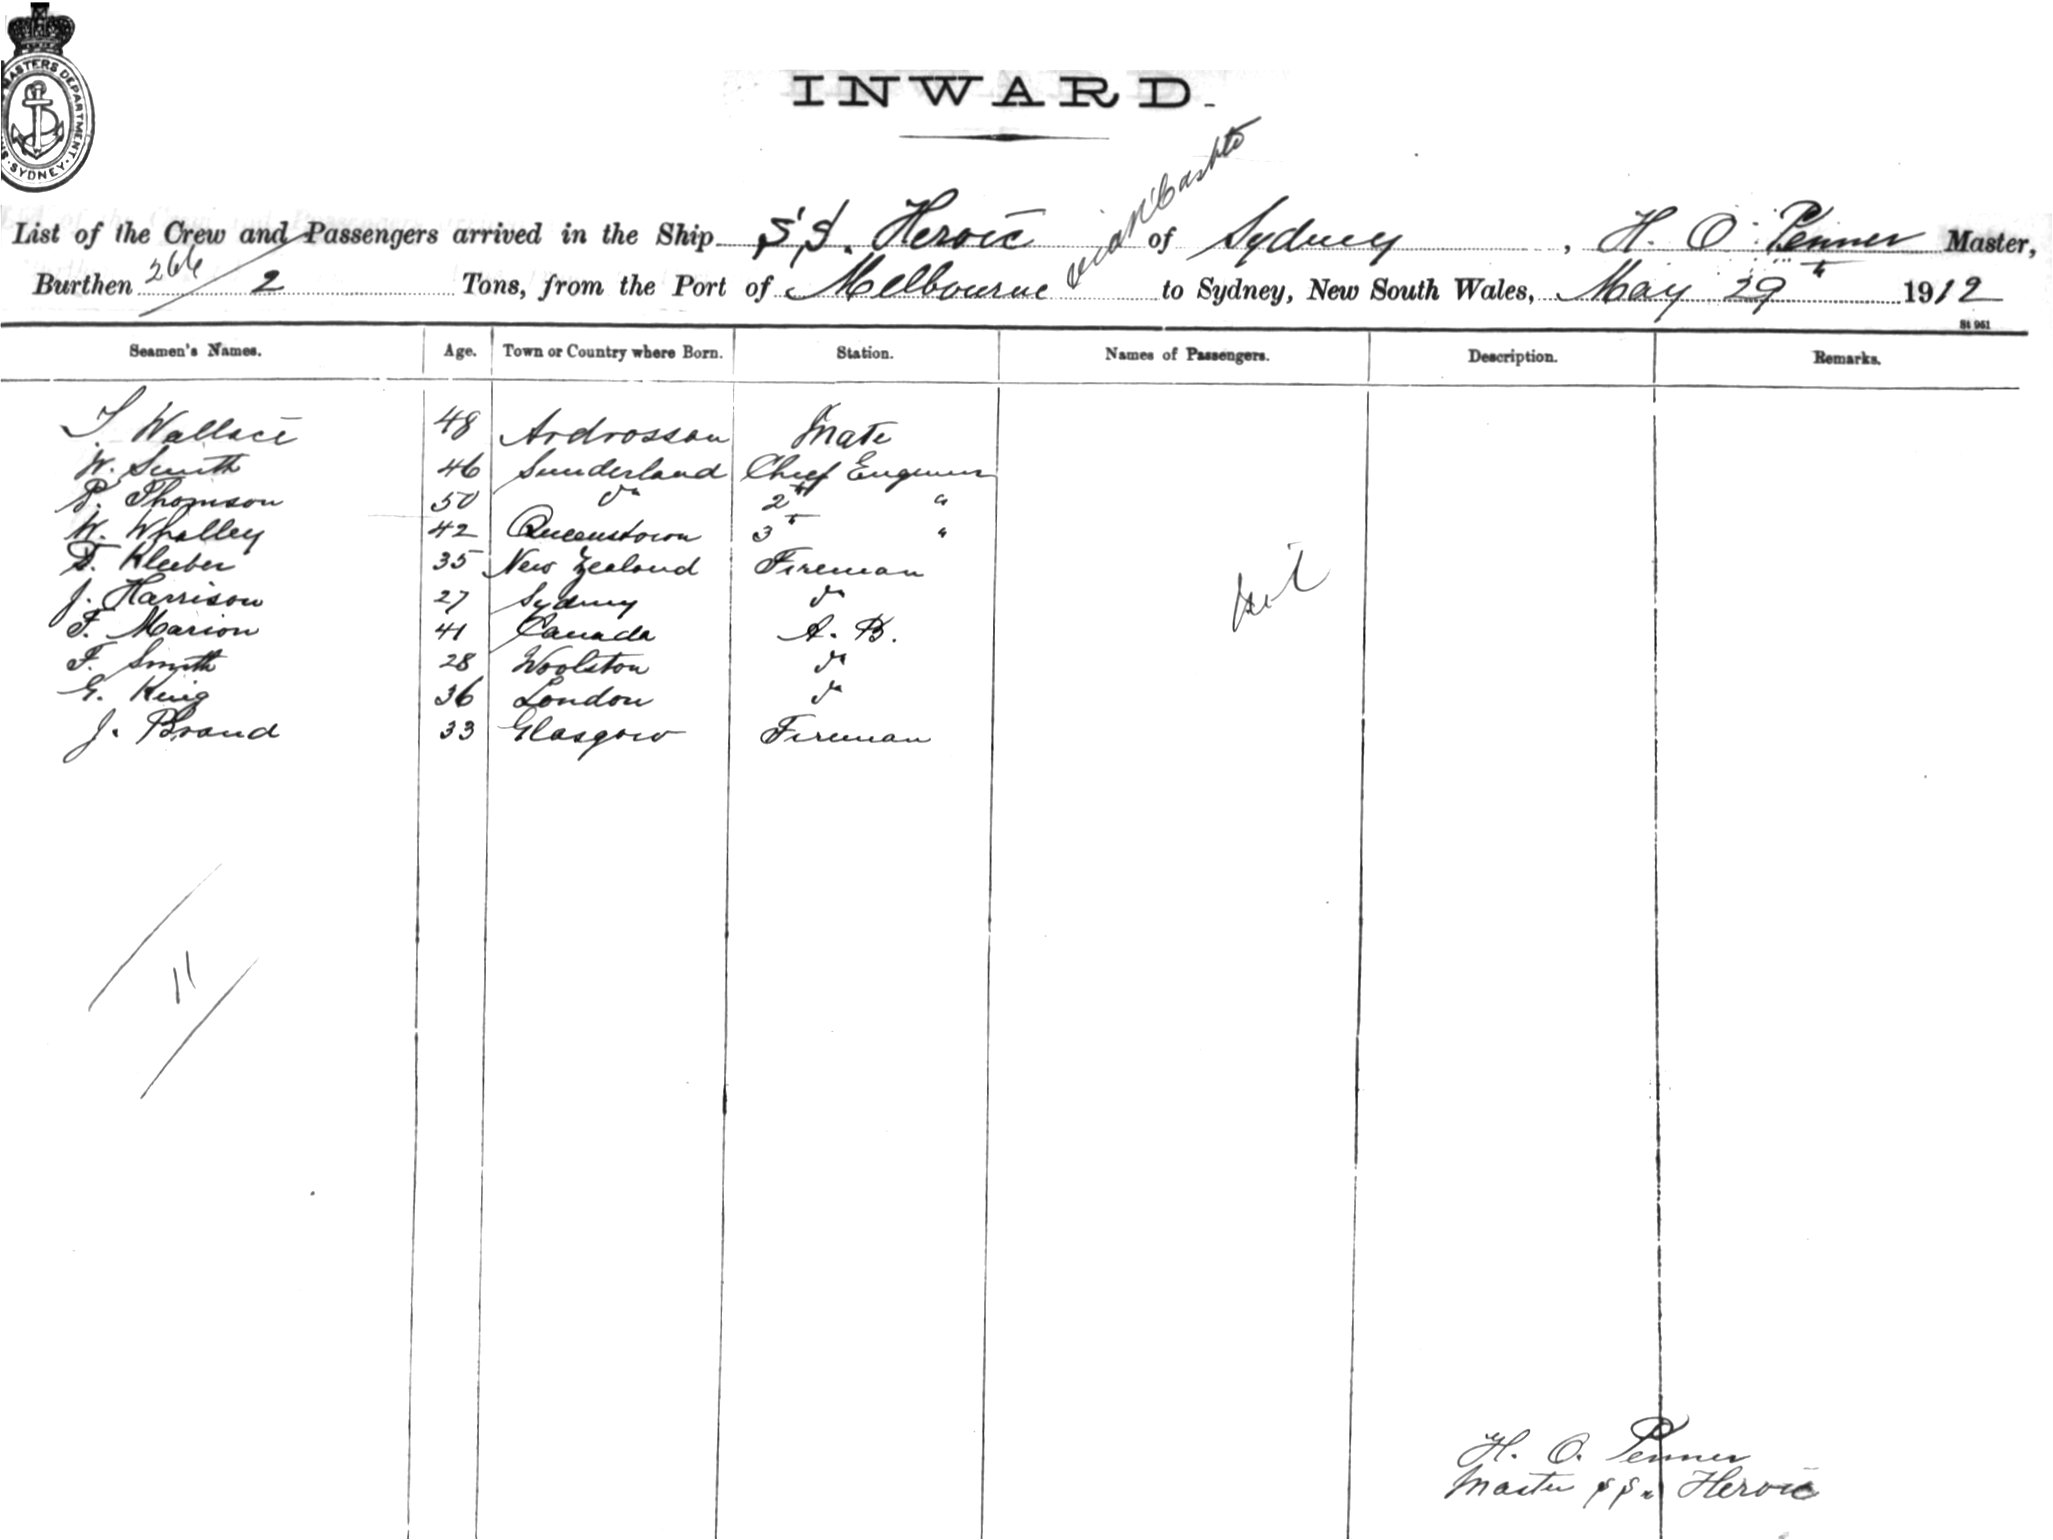 MASTERS DEPARTMENT
SYDNEY
INWARD.
List of the Crew and Passengers arrived in the Ship S.S. Heroic of Sydney, H. O. Penner Master,
via N'Castle
Burthen 266/2 Tons, from the Port of Melbourne to Sydney, New South Wales, May 29th 1912
St 961
Seamen's Names. Age. Town or Country where Born. Station. Names of Passengers. Description. Remarks.
Wallace 48 Ardrossan Mate
W. Smith 46 Sunderland Chief Engineer
Thomson 50 do 2nd "
W. Whalley 42 Queenstown 3rd "
Kleeber 35 New Zealand Fireman
J. Harrison 27 Sydney do
F. Marion 41 Canada A. B.
F. Smith 28 Woolston do
G. King 36 London do
J. Brand 33 Glasgow Fireman
nil
11
H. O. Penner
Master SS. Heroic